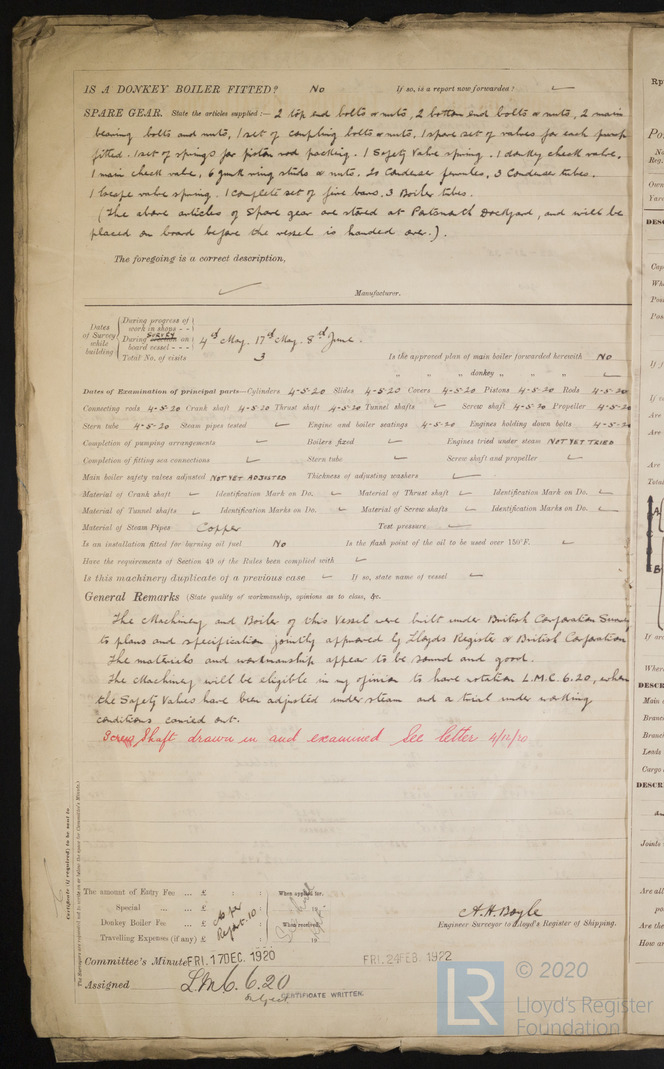 IS A DONKEY BOILER FITTED? No If so, is a report now forwarded?
SPARE GEAR. State the articles supplied:— 2 top end bolts & nuts, 2 bottom end bolts & nuts, 2 main
bearing bolts and nuts, 1 set of coupling bolts & nuts. 1 spare set of valves for each pump
fitted. 1 set of springs for piston rod packing. 1 Safety Valve spring. 1 donkey check valve.
1 main check valve, 6 junk ring studs & nuts. 20 Condenser ferrules, 3 Condenser tubes.
1 Escape valve spring. 1 complete set of fire bars. 3 Boiler tubes.
(The above articles of Spare gear are stored at Portsmouth Dockyard, and will be
placed on board before the vessel is handed over.).
The foregoing is a correct description,
Manufacturer.
Dates of Survey while building
During progress of work in shops - -
During SURVEY on board vessel - - - 4th May. 17th May. 8th June.
Total No. of visits 3 Is the approved plan of main boiler forwarded herewith No
" " " donkey " " "
Dates of Examination of principal parts—Cylinders 4-5-20 Slides 4-5-20 Covers 4-5-20 Pistons 4-5-20 Rods 4-5-20
Connecting rods 4-5-20 Crank shaft 4-5-20 Thrust shaft 4-5-20 Tunnel shafts Screw shaft 4-5-20 Propeller 4-5-20
Stern tube 4-5-20 Steam pipes tested Engine and boiler seatings 4-5-20 Engines holding down bolts 4-5-20
Completion of pumping arrangements Boilers fixed Engines tried under steam NOT YET TRIED
Completion of fitting sea connections Stern tube Screw shaft and propeller
Main boiler safety valves adjusted NOT YET ADJUSTED Thickness of adjusting washers
Material of Crank shaft Identification Mark on Do. Material of Thrust shaft Identification Mark on Do.
Material of Tunnel shafts Identification Marks on Do. Material of Screw shafts Identification Marks on Do.
Material of Steam Pipes Copper Test pressure
Is an installation fitted for burning oil fuel No Is the flash point of the oil to be used over 150°F.
Have the requirements of Section 49 of the Rules been complied with
Is this machinery duplicate of a previous case If so, state name of vessel
General Remarks (State quality of workmanship, opinions as to class, &c.
The Machinery and Boiler of this Vessel were built under British Corporation Survey
to plans and specification jointly approved by Lloyds Register & British Corporation
The materials and workmanship appear to be sound and good.
The Machinery will be eligible in my opinion to have notation L.M.C. 6.20, when
the Safety Valves have been adjusted under steam and a trial under working
conditions carried out.
Screw Shaft drawn in and examined See letter 4/12/20
Certificate (if required) to be sent to
The amount of Entry Fee ... £ : : When applied for,
Special ... £ 19
Donkey Boiler Fee ... £ As per Report 10 When received,
Travelling Expenses (if any) £ 19
A. H. Boyle
Engineer Surveyor to Lloyd's Register of Shipping.
Committee's Minute FRI. 17 DEC. 1920 FRI. 24 FEB. 1922
Assigned L.M.C. 6.20
Subject
CERTIFICATE WRITTEN.
LR © 2020
Lloyd's Register
Foundation